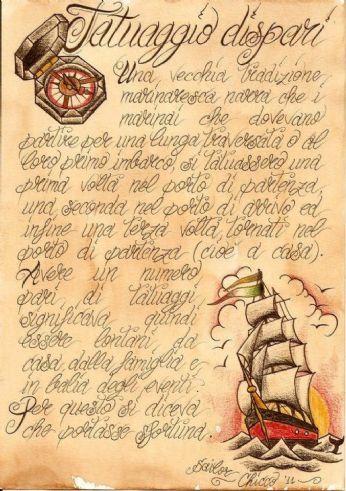 Tatuaggio dispari
Una vecchia tradizione
marinaresca narra che i
marinai che dovevano
partire per una lunga traversata o al
loro primo imbarco, si tatuassero una
prima volta nel porto di partenza,
una seconda nel porto di arrivo ed
infine una terza volta, tornati nel
porto di partenza (cioè a casa).
Avere un numero
pari di tatuaggi,
significava quindi
essere lontani da
casa, dalla famiglia e,
in balia degli eventi.
Per questo si diceva
che portasse sfortuna.
Sailor
Chicco '11